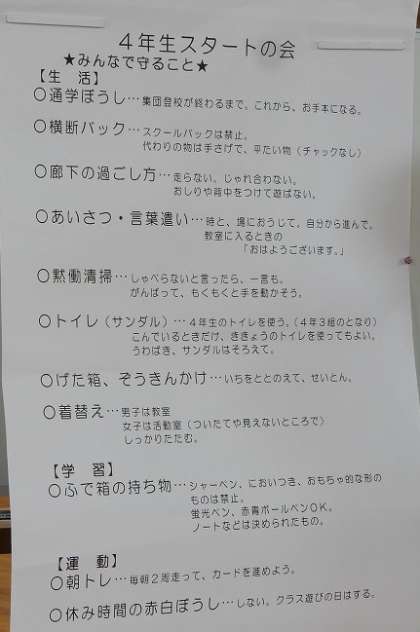 ４年生スタートの会
★みんなで守ること★
【生　活】
○通学ぼうし…集団登校が終わるまで、これから、お手本になる。
○横断バック…スクールバックは禁止。
代わりの物は手さげで、平たい物（チャックなし）
○廊下の過ごし方…走らない。じゃれ合わない。
おしりや背中をつけて遊ばない。
○あいさつ・言葉遣い…時と、場におうじて、自分から進んで。
教室に入るときの
「おはようございます。」
○黙働清掃…しゃべらないと言ったら、一言も。
がんばって、もくもくと手を動かそう。
○トイレ（サンダル）…４年生のトイレを使う。（４年３組のとなり）
こんでいるときだけ、ききょうのトイレを使ってもよい。
うわばき、サンダルはそろえて。
○げた箱、ぞうきんかけ…いちをととのえて、せいとん。
○着替え…男子は教室
女子は活動室（ついたてや見えないところで）
しっかりたたむ。
【学　習】
○ふで箱の持ち物…シャーペン、においつき、おもちゃ的な形の
ものは禁止。
蛍光ペン、赤青ボールペンＯＫ。
ノートなどは決められたもの。
【運　動】
○朝トレ…毎朝２周走って、カードを進めよう。
○休み時間の赤白ぼうし…しない。クラス遊びの日はする。